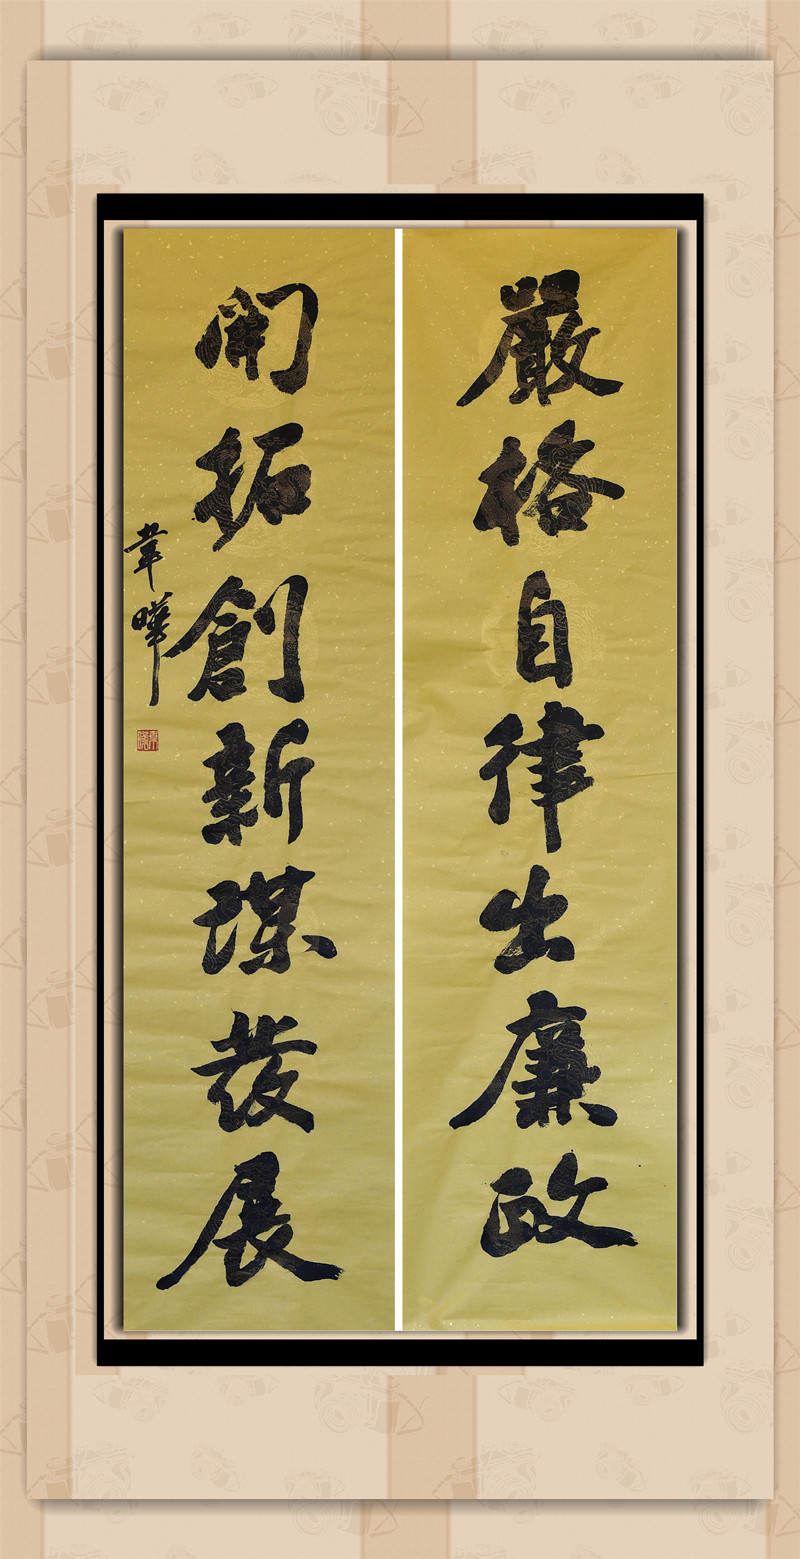 嚴格自律出廉政
開拓創新謀發展
韋曄